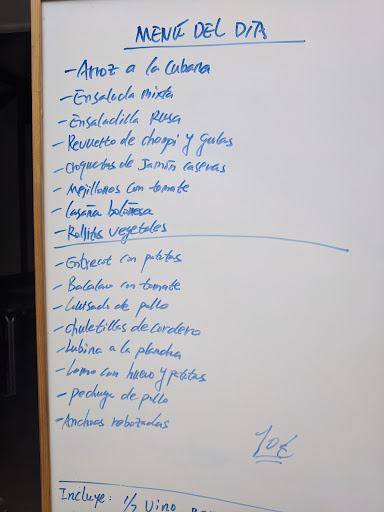 MENÚ DEL DIA
- Arroz a la Cubana
- Ensalada mixta
- Ensaladilla Rusa
- Revuelto de champi y gulas
- Croquetas de Jamón caseras
- Mejillones con tomate
- Lasaña boloñesa
- Rollitos vegetales
- Entrecot con patatas
- Bacalao con tomate
- Guisado de pollo
- Chuletillas de cordero
- Lubina a la plancha
- Lomo con huevo y patatas
- Pechuga de pollo
- Anchoas rebozadas
10€
Incluye: 1/2 Vino